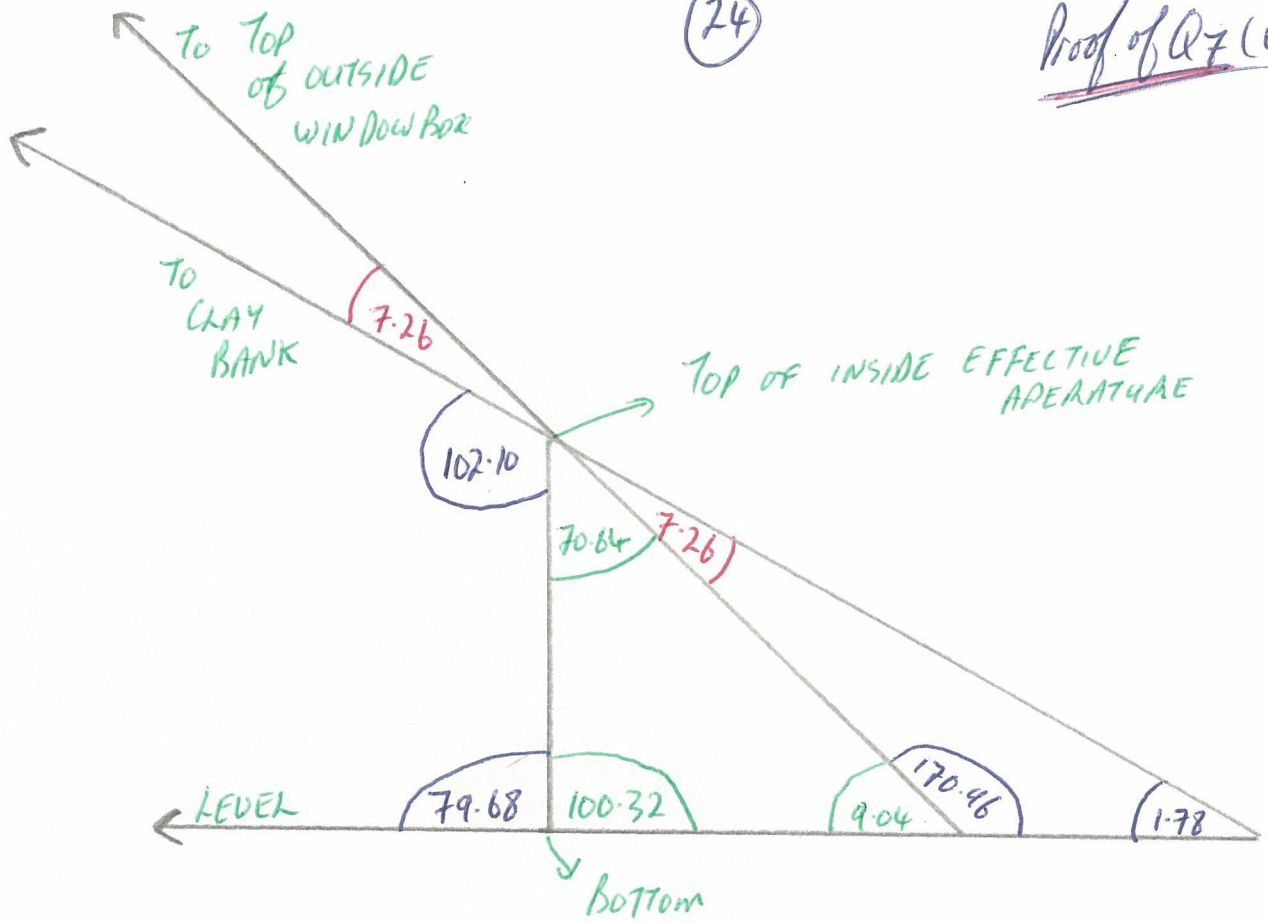 24
Proof of Q7 (
To Top
of OUTSIDE
WINDOWBOX
To
CLAY
BANK
7.26
TOP OF INSIDE EFFECTIVE
APERATURE
102.10
70.64
7.26
LEVEL
79.68
100.32
9.04
170.96
1.78
Bottom